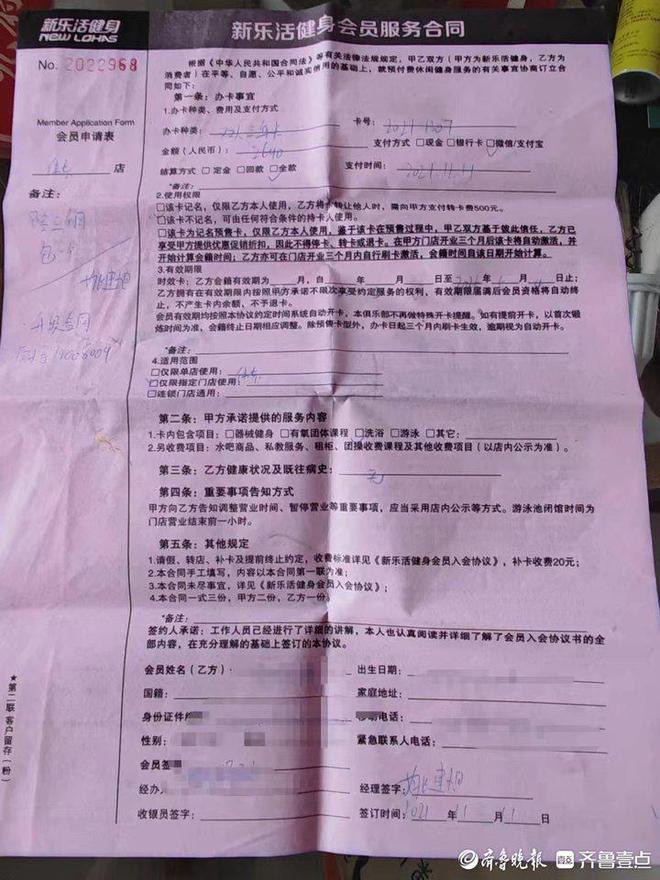 新乐活健身
NEW LOHAS
新乐活健身会员服务合同
No. 2022968
Member Application Form
会员申请表
佳东 店
备注:
包卡
升级合同
根据《中华人民共和国合同法》等有关法律法规规定，甲乙双方（甲方为新乐活健身，乙方为
消费者）在平等、自愿、公平和诚实信用的基础上，就预付费休闲健身服务的有关事宜协商订立合
同如下:
第一条：办卡事宜
1.办卡种类、费用及支付方式
办卡种类： 双人三年卡 卡号： 20211207
金额（人民币）： 2640 支付方式 □现金 □银行卡 □微信/支付宝
结算方式 □定金 □回款 □全款 支付时间： 2021.11.11
*备注:
2.使用权限
□该卡记名，仅限乙方本人使用，乙方将卡转让他人时，需向甲方支付转卡费500元。
□该卡不记名，可由任何符合条件的持卡人使用。
□该卡为记名预售卡，仅限乙方本人使用，鉴于该卡在预售过程中，甲乙双方基于彼此信任，乙方已
享受甲方提供优惠促销折扣，因此不得停卡、转卡或退卡。在甲方门店开业三个月后该卡将自动激活，并
开始计算会籍时间；乙方亦可在门店开业三个月内自行刷卡激活，会籍时间自该日期开始计算。
3.有效期限
时效卡：乙方会籍有效期为 月，自 年 月 日至 年 月 日止；
乙方拥有在有效期限内按照甲方承诺不限次享受约定服务的权利，有效期限届满后会员资格将自动终
止，不产生卡内余额，不予退卡。
会员有效期均按照本协议约定时间系统自动开卡，本俱乐部不再做特殊开卡提醒。如有提前开卡，以首次锻
炼时间为准，会籍终止日期相应调整。除预售卡型外，办卡日起三个月内刷卡生效，逾期视为自动开卡。
*备注:
4.适用范围
□仅限单店使用： 佳东
□仅限指定门店使用：
□连锁门店通用：
第二条：甲方承诺提供的服务内容
1.卡内包含项目：□器械健身 □有氧团体课程 □洗浴 □游泳 □其它：
2.另收费项目：水吧商品、私教服务、租柜、团操收费课程及其他收费项目（以店内公示为准）。
第三条：乙方健康状况及既往病史： 无
第四条：重要事项告知方式
甲方向乙方告知调整营业时间、暂停营业等重要事项，应当采用店内公示等方式。游泳池闭馆时间为
门店营业结束前一小时。
第五条：其他规定
1.请假、转店、补卡及提前终止约定，收费标准详见《新乐活健身会员入会协议》，补卡收费20元；
2.本合同手工填写，内容以本合同第一联为准；
3.本合同未尽事宜，详见《新乐活健身会员入会协议》；
4.本合同一式三份，甲方二份，乙方一份。
*备注:
签约人承诺：工作人员已经进行了详细的讲解，本人也认真阅读并详细了解了会员入会协议书的全
部内容，在充分理解的基础上签订的本协议。
会员姓名（乙方）： 出生日期：
国籍： 家庭地址：
身份证件 移动电话：
性别： 紧急联系人电话：
会员签
经办 经理签字：
收银员签字： 签订时间：2021 年 11 月 11 日
★第二联 客户留存（粉）
齐鲁晚报 齐鲁壹点